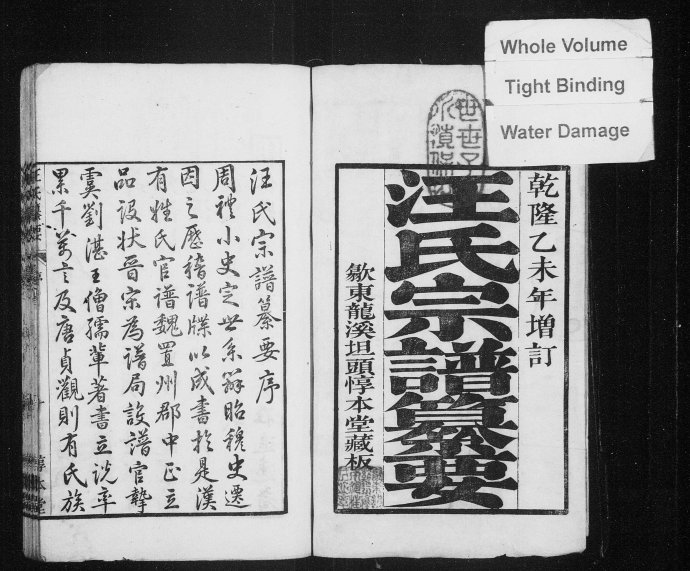 Whole Volume
Tight Binding
Water Damage
乾隆乙未年增訂
汪氏宗譜纂要
歙東龍溪坦頭惇本堂藏板
汪氏宗譜纂要序
周禮小史定世系辨昭穆史遷
因之歷稽譜牒以成書於是漢
有姓氏官譜魏置州郡中正立
品設狀晉宋為譜局設譜官摯
虞劉湛王僧孺輩著書立說率
累千萬言及唐貞觀則有氏族
惇本堂